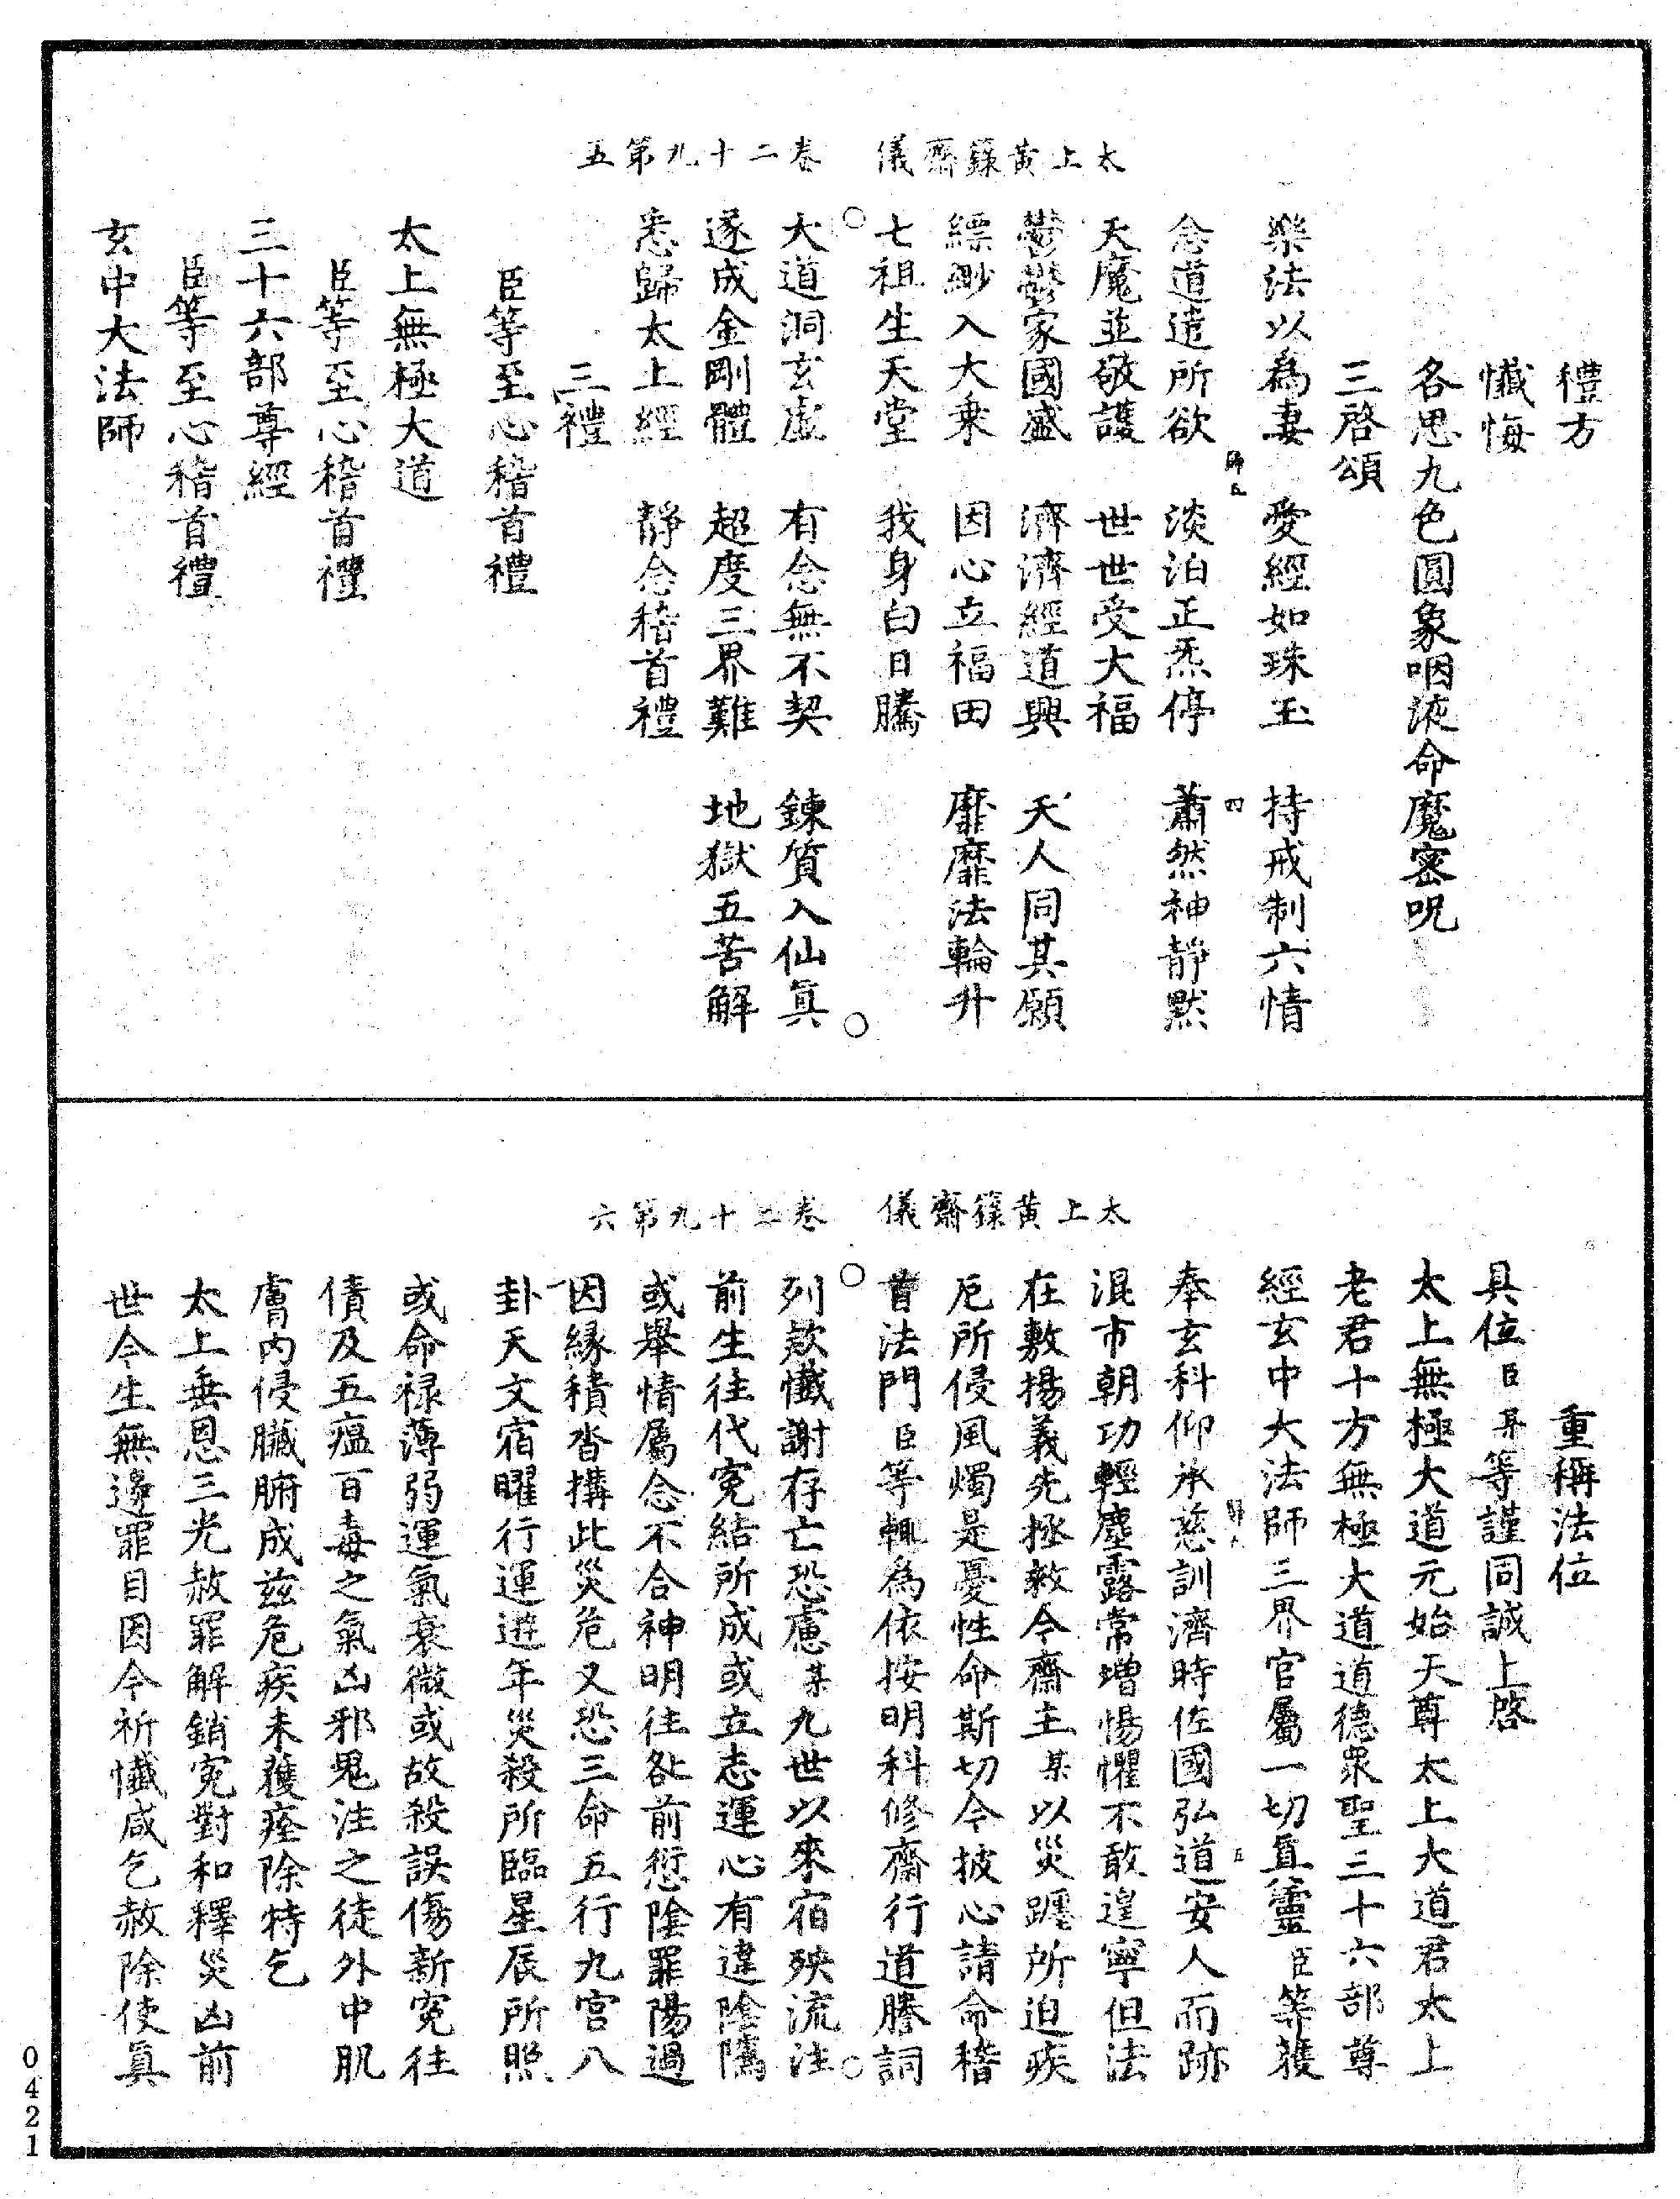 太上黃籙齋儀　卷二十九第五
禮方
懺悔
各思九色圓象咽液命魔密呪
三啓頌
樂法以爲妻　愛經如珠玉　持戒制六情
念道遣所欲　淡泊正炁停　蕭然神靜默
天魔並敬護　世世受大福
鬱鬱家國盛　濟濟經道興　天人同其願
縹緲入大乘　因心立福田　靡靡法輪升
七祖生天堂　我身白日騰
大道洞玄虛　有念無不契　鍊質入仙眞
遂成金剛體　超度三界難　地獄五苦解
悉歸太上經　靜念稽首禮
三禮
臣等至心稽首禮
太上無極大道
臣等至心稽首禮
三十六部尊經
臣等至心稽首禮
玄中大法師
太上黃籙齋儀　卷二十九第六
重稱法位
具位臣某等謹同誠上啓
太上無極大道元始天尊太上大道君太上
老君十方無極大道道德衆聖三十六部尊
經玄中大法師三界官屬一切眞靈臣等獲
奉玄科仰承慈訓濟時佐國弘道安人而跡
混市朝功輕塵露常增惕懼不敢遑寧但法
在敷揚義先拯救今齋主某以災躔所迫疾
厄所侵風燭是憂性命斯切今披心請命稽
首法門臣等輒爲依按明科修齋行道騰詞
列欵懺謝存亡恐慮某九世以來宿殃流注
前生往代寃結所成或立志運心有違陰隲
或舉情屬念不合神明往咎前愆陰罪陽過
因緣積沓搆此災危又恐三命五行九宮八
卦天文宿曜行運遊年災殺所臨星辰所照
或命祿薄弱運氣衰微或故殺誤傷新寃往
債及五瘟百毒之氣凶邪鬼注之徒外中肌
膚內侵臟腑成玆危疾未獲痊除特乞
太上垂恩三光赦罪解銷寃對和釋災凶前
世今生無邊罪目因今祈懺咸乞赦除使眞
0421